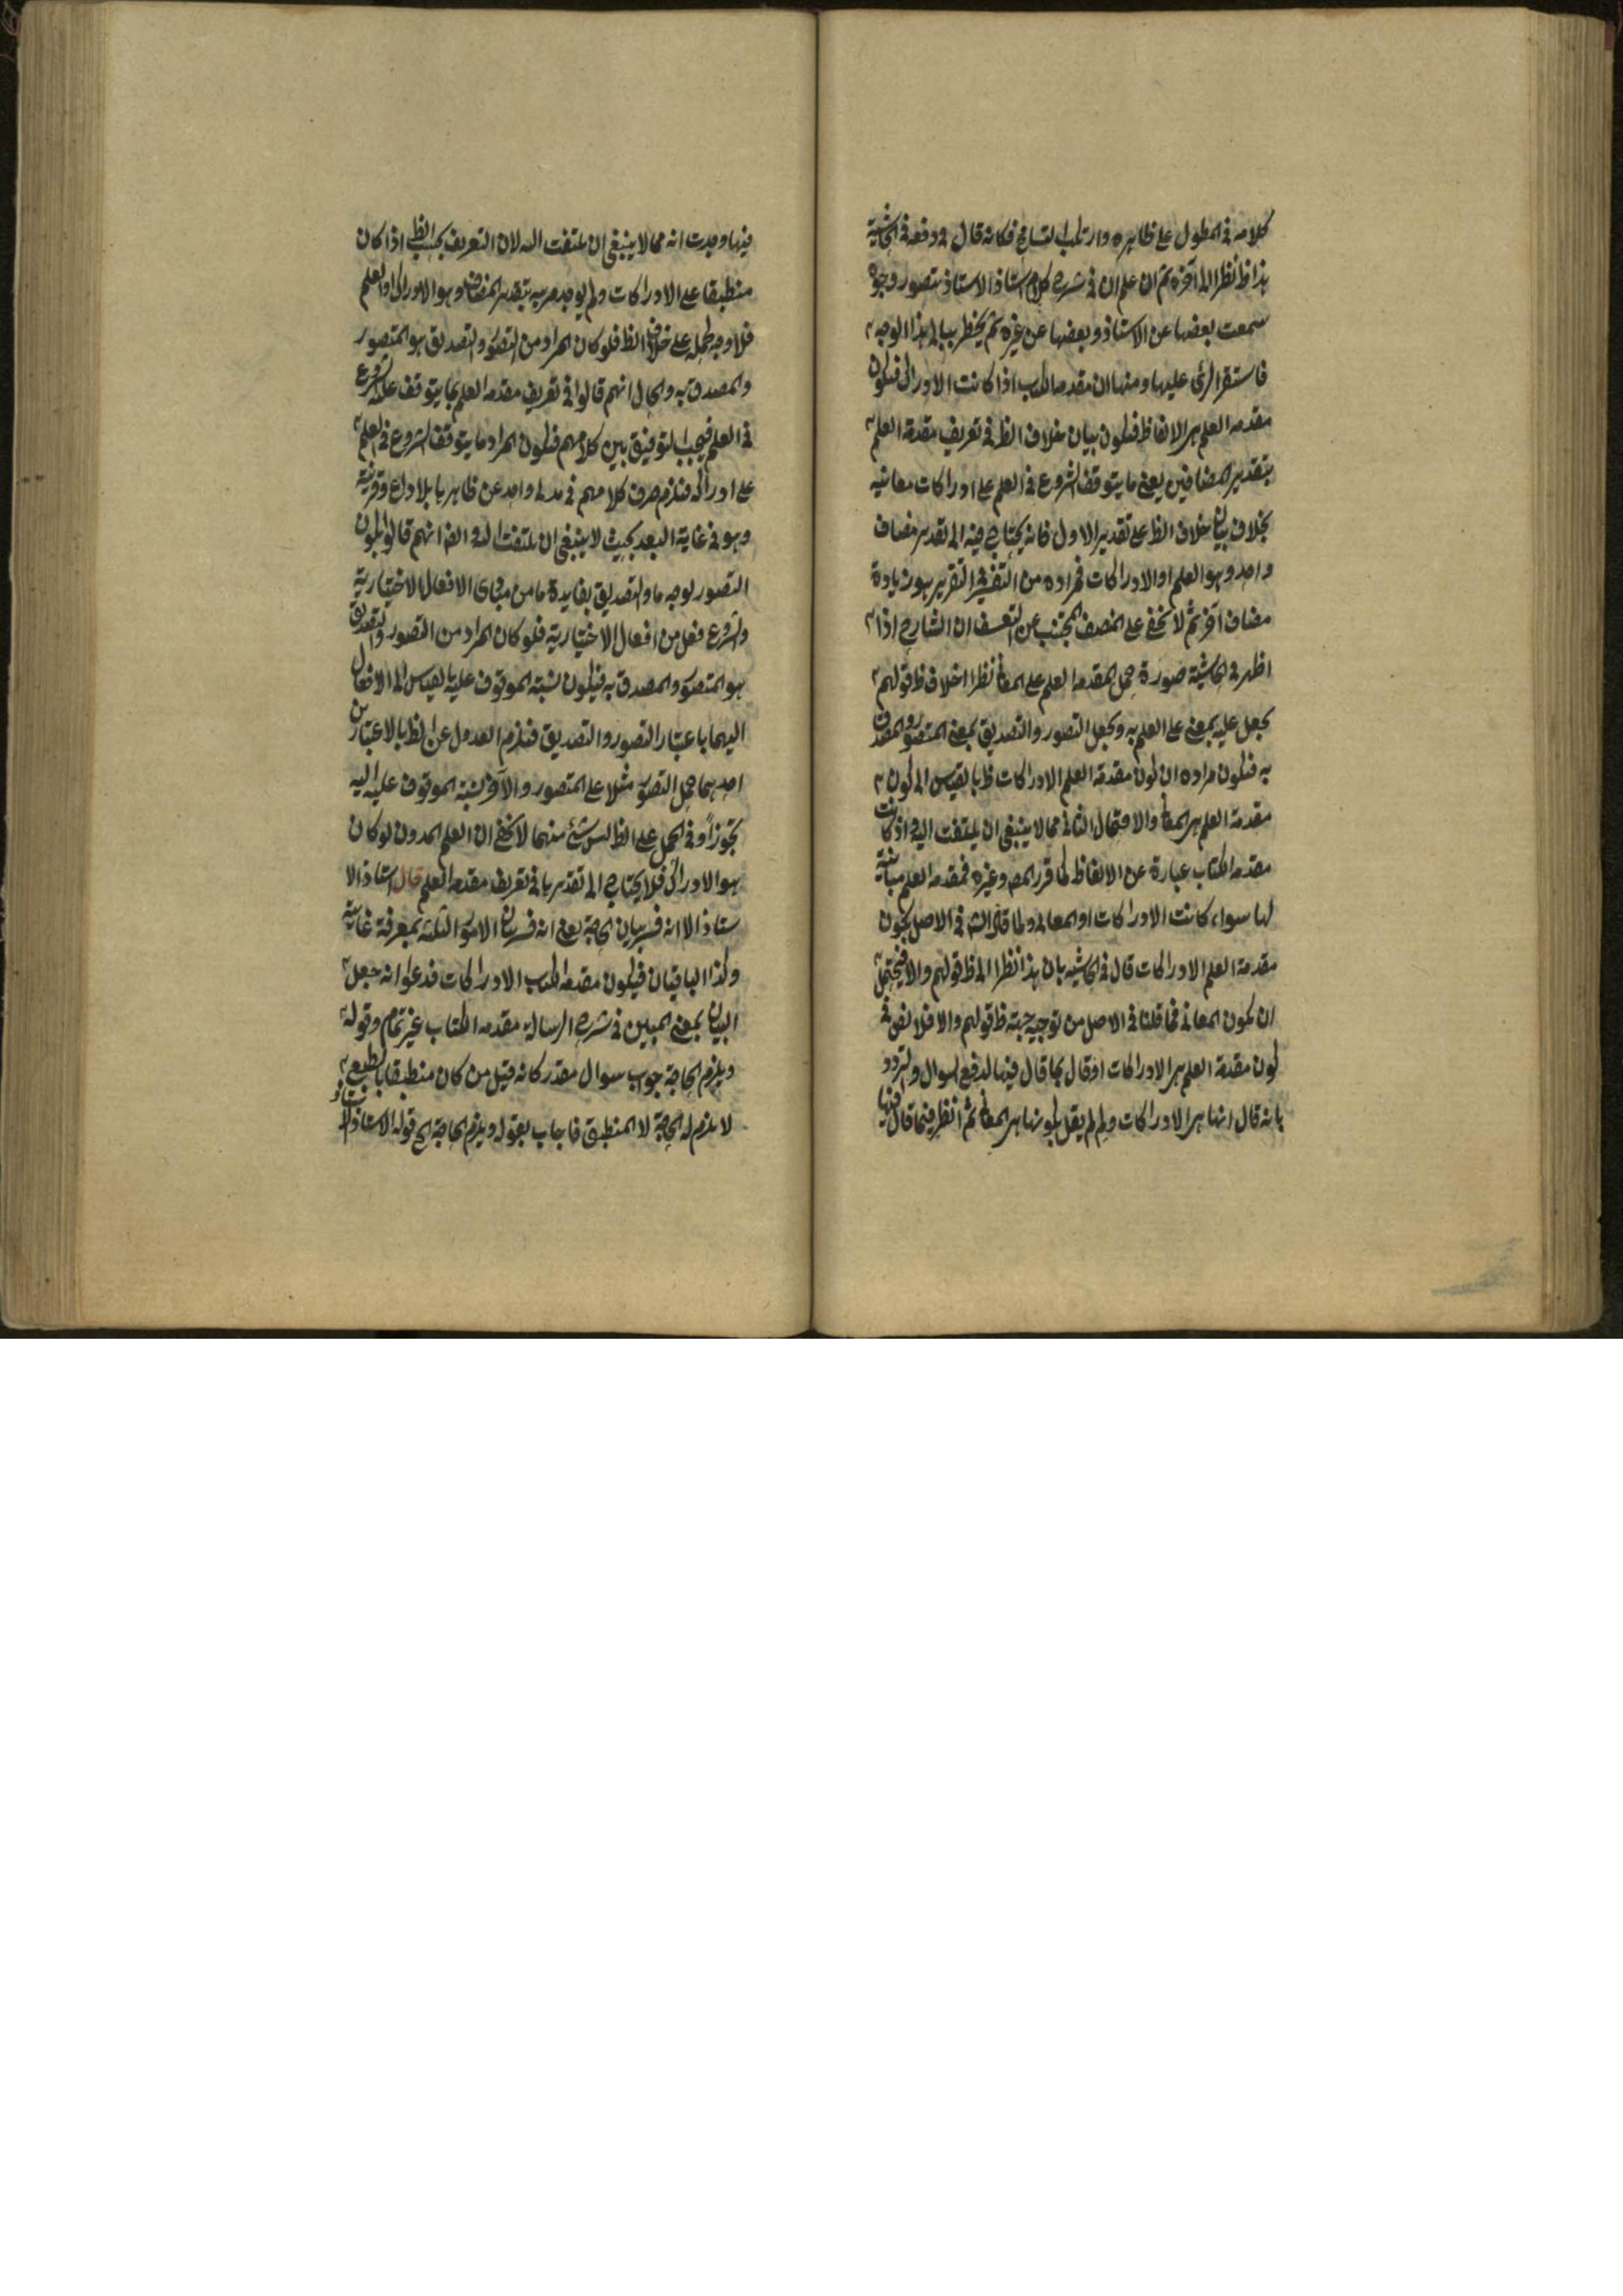 كلامه في المطول على ظاهره وارتكب التسامح فكانه قال ودفعه في الحاشية
هذا ظ نظرا الى آخره ثم ان علم ان في شرح كلام استاذ الاستاذ يتصور وجوه
سمعت بعضها عن الاستاذ وبعضها عن غيره ثم يخطر ببالي هذا الوجه
فاستقر الرأى عليها ومنها ان مقدمه الكتاب اذا كانت الادراك فيكون
مقدمه العلم هى الالفاظ فيكون بيان خلاف الظ في تعريف مقدمة العلم
بتقدير المضافين يعنى ما يتوقف الشروع في العلم على ادراكات معانيه
بخلاف بيان خلاف الظ على تقدير الاول فانه يحتاج فيه الى تقدير مضاف
واحد وهو العلم او الادراكات فمراده من التقرير هو زيادة
مضاف آخر ثم لا يخفى على المنصف المجتنب عن التعسف ان الشارح اذا
اظهر في الحاشية صورة حمل المقدمه العلم على المعانى نظرا اخلاف ظ قولهم
بجعل عليه بمعنى على العلم به وبجعل التصور والتصديق بمعنى المتصور والمصدق
به فيكون مراده ان كون مقدمة العلم الادراكات ظ بالقياس الى كون
مقدمة العلم هى المعانى والاحتمال الثانى مما لا ينبغى ان يلتفت اليه واذ كانت
مقدمه الكتاب عبارة عن الالفاظ كما قرر المص وغيره فمقدمه العلم مباينة
لها سواء كانت الادراكات او المعانى ولما قال الش في الاصل بكون
مقدمة العلم الادراكات قال في الحاشيه بان هذا نظرا الى ظ قولهم والا فيحتمل
ان يكون المعانى فما قلنا في الاصل من توجيه جهته ظ قولهم والا فلا نص في
كون مقدمة العلم هى الادراكات او قال بما قال فيها لدفع السوال والتردد
بانه قال انها هى الادراكات ولم لم يقل بكونها هى المعانى ثم انظر فيما قال فيها
فيها وجدت انه مما لا ينبغى ان يلتفت اليه لان التعريف بحسب الظ اذا كان
منطبقا على الادراكات ولم يوجد بتقدير المضاف وهو الادراك او العلم
فلا وجه لحمله على خلاف الظ فلو كان المراد من التصور والتصديق هو المتصور
والمصدق به والحال انهم قالوا في تعريف مقدمه العلم بما يتوقف عليه الشروع
في العلم فيجب التوفيق بين كلامهم فيكون المراد ما يتوقف الشروع في العلم
على ادراكه فيلزم صرف كلامهم في واحد عن ظاهرها بلا داع وقرينة
وهو في غاية البعد بحيث لا ينبغى ان يلتفت اليه انهم قالوا بكون
التصور بوجه ما والتصديق بفايدة ما من مبادى الافعال الاختيارية
والشروع فعل من افعال الاختيارية فلو كان المراد من التصور والتصديق
هو المتصور والمصدق به فيكون نسبة الموقوف عليه بالقياس الى الافعال
اليهما باعتبار التصور والتصديق فيلزم العدول عن الظ بالاعتبارين
احدهما حمل التصور مثلا على المتصور والآخر نسبة الموقوف عليه اليه
تجوزاً وفي الحمل على الظ ليس شئ منهما لا يخفى ان العلم المدون لو كان
هو الادراك فلا يحتاج الى تقديرها في تعريف مقدمه العلم قال استاذ الا
ستاذ الا انه فسر بيان الحاجة يعنى انه فسر بيان الامور الثلثه بمعرفة غايته
وكذا الباقيان فيكون مقدمه الكتاب الادراكات فدعوا انه جعل
البيان بمعنى المبين في شرح الرسالة مقدمه الكتاب غير تمام وقوله
ويلزم الحاجة جواب سوال مقدر كانه قيل من كان منطبقا بالطبع
لا يلزم له الحاجة لا المنطق فاجاب بقوله ويلزم الحاجة الخ قوله الاستاذ